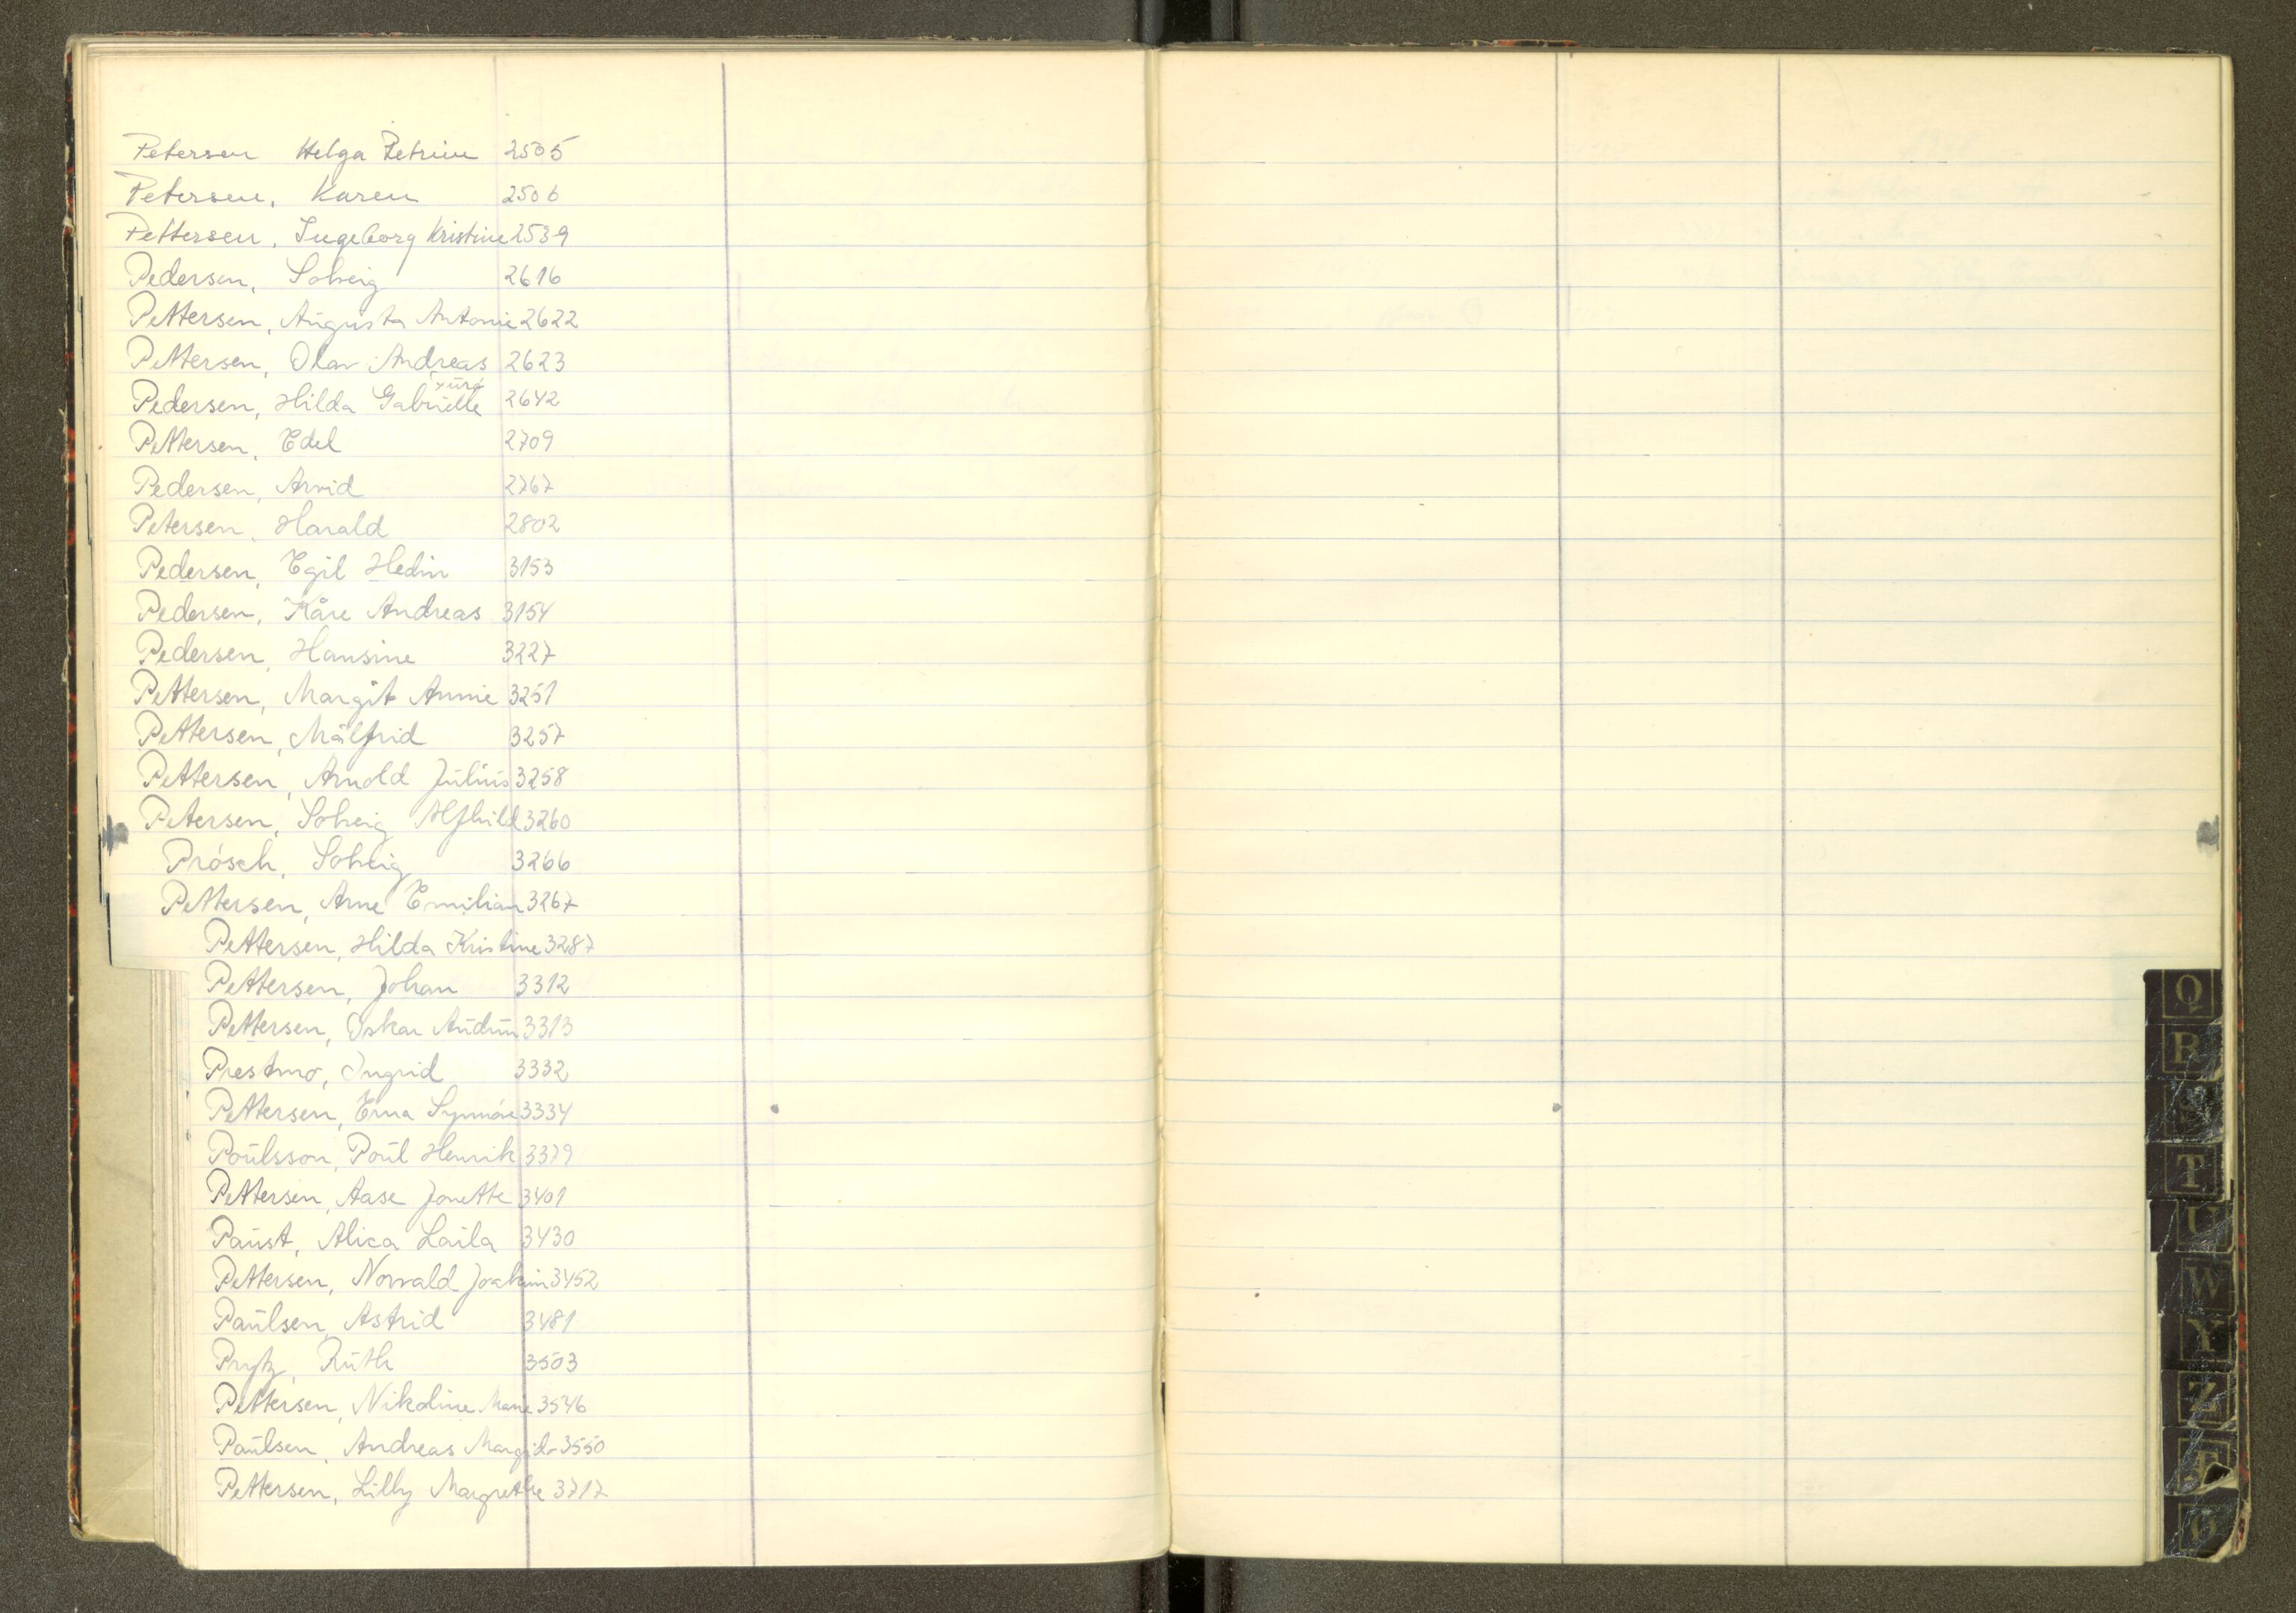 Petersen Helga Petrine 2505
Petersen, Karen 2506
Pettersen, Ingeborg Kristine 2539
Pedersen, Solveig 2616
Pettersen, Augusta Antonie 2622
Pettersen, Olav Andreas 2623
Pedersen, Hilda Gabrielle 2642
Pettersen, Edel 2709
Pedersen, Arvid 2767
Petersen, Harald 2802
Pedersen, Egil Hedin 3153
Pedersen, Kåre Andreas 3154
Pedersen, Hansine 3227
Pettersen, Margit Annie 3251
Pettersen, Målfrid 3257
Pettersen, Arnold Julius 3258
Petersen, Solveig Alfhild 3260
Prösch, Solveig 3266
Pettersen, Arne Emilian 3267
Pettersen, Hilda Kristine 3287
Pettersen, Johan 3312
Pettersen, Oskar Audun 3313
Prestmo, Ingrid 3332
Pettersen, Erna Synnöve 3334
Poulsson, Poul Henrik 3379
Pettersen, Aase Jonette 3401
Paust, Alica Laila 3430
Pettersen, Norvald Joakim 3452
Paulsen, Astrid 3481
Prytz, Ruth 3503
Pettersen, Nikoline Marie 3546
Paulsen, Andreas 3550
Pettersen, Lilly Margrethe 3717
Q
R
S
T
U
W
Y
Z
Æ
Ø